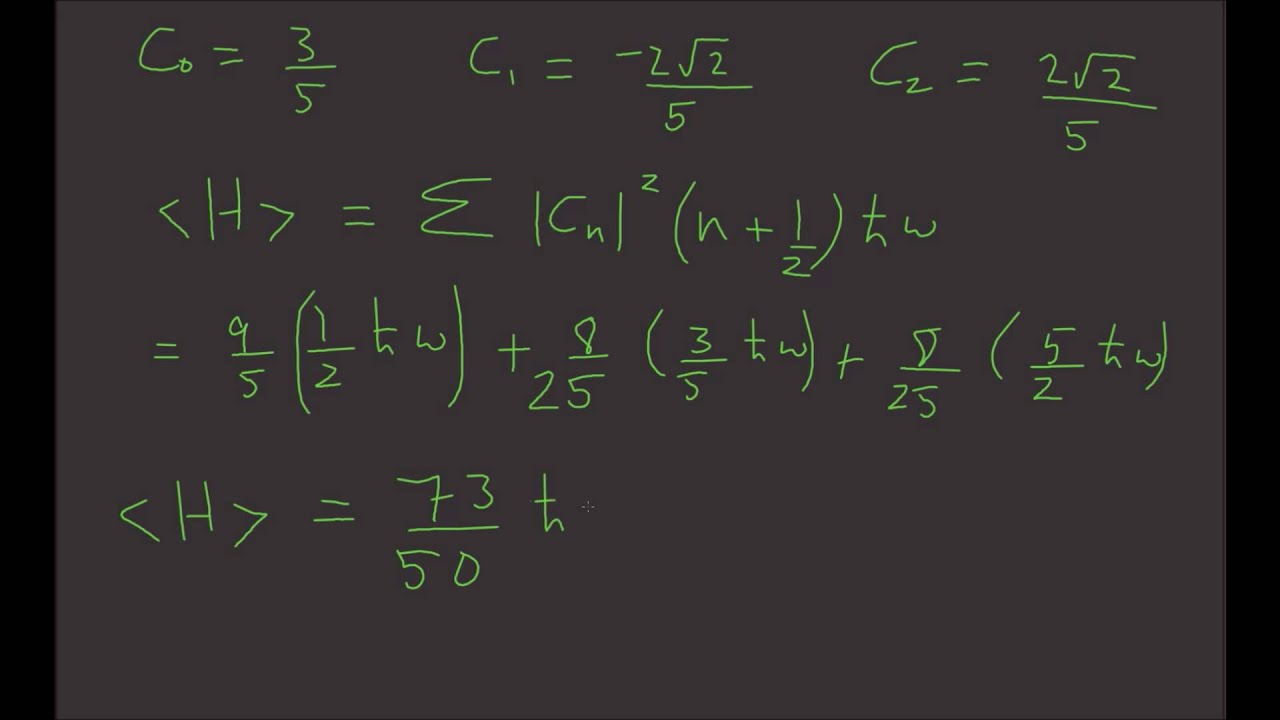 C₀ = 3/5 C₁ = -2√2/5 C₂ = 2√2/5
<H> = Σ |Cₙ|² (n + 1/2) ħω
= 9/5 (1/2 ħω) + 8/25 (3/5 ħω) + 8/25 (5/2 ħω)
<H> = 73/50 ħ